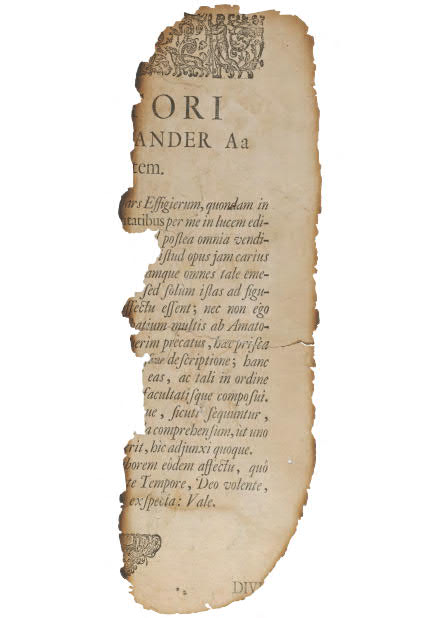 ORI
ANDER Aa
tem.
ars Effigierum, quondam in
tatibus per me in lucem edi-
postea omnia vendi-
istud opus jam carius
amque omnes tale eme-
sed solùm istas ad figu-
ffectu essent; nec non ego
multis ab Amato-
erim precatus, hæc prisca
descriptione; hanc
eas, ac tali in ordine
facultatisque composui.
ue, sicuti sequuntur,
a comprehensum, ut uno
erit, hic adjunxi quoque.
borem eòdem affectu, quô
te Tempore, Deo volente,
exspecta: Vale.